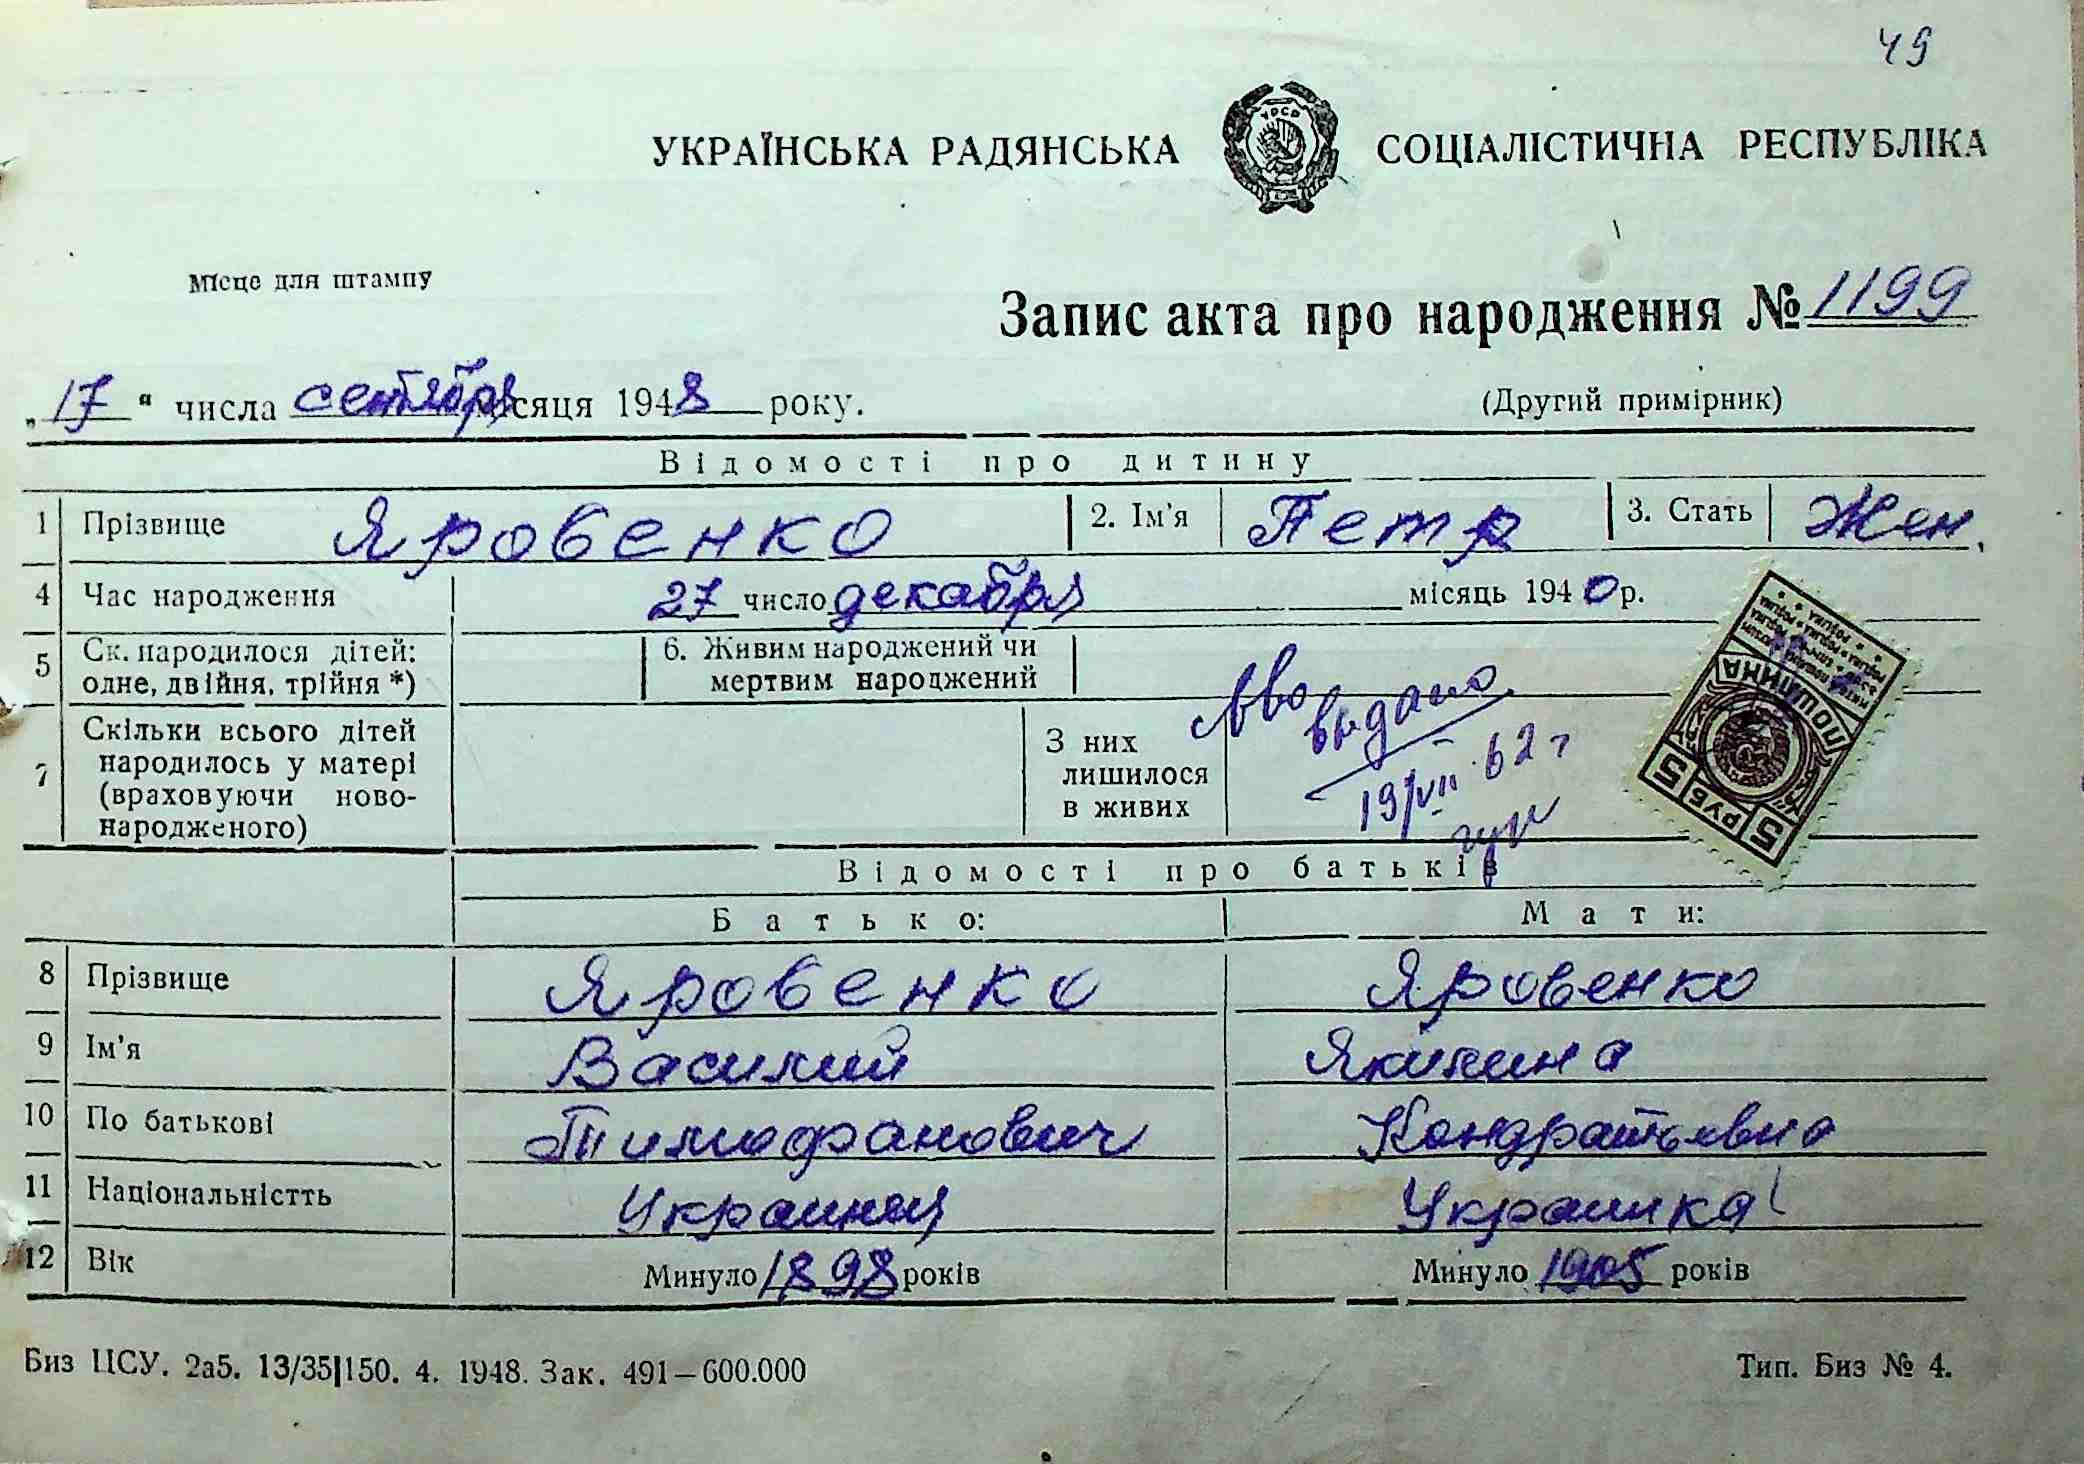 49
УКРАЇНСЬКА РАДЯНСЬКА СОЦІАЛІСТИЧНА РЕСПУБЛІКА
УРСР
Місце для штампу
Запис акта про народження № 1199
„17“ числа сентября місяця 1948 року.
(Другий примірник)
Відомості про дитину
1 Прізвище Яровенко 2. Ім'я Петр 3. Стать Жен.
4 Час народження 27 число декабря місяць 1940 р.
5 Ск. народилося дітей: одне, двійня, трійня *)
6. Живим народжений чи мертвим народжений
7 Скільки всього дітей народилось у матері (враховуючи ново-народженого)
З них лишилося в живих
выдано
19/VII 62 г
ПОШЛИНА
5 РУБ 5
Відомості про батьків
Батько: Мати:
8 Прізвище Яровенко Яровенко
9 Ім'я Василий Якилина
10 По батькові Тимофанович Кондратьевна
11 Національністть Украинец Украинка
12 Вік Минуло 1898 років Минуло 1905 років
Биз ЦСУ. 2а5. 13/35|150. 4. 1948. Зак. 491—600.000
Тип. Биз № 4.